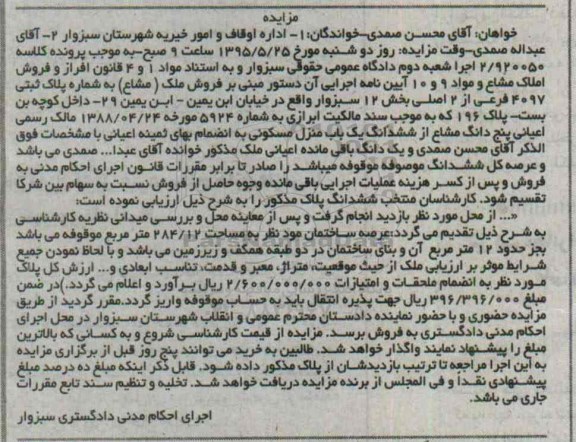 مزایده
خواهان: آقای محسن صمدی-خواندگان: ۱- اداره اوقاف و امور خیریه شهرستان سبزوار ۲- آقای
عبداله صمدی-وقت مزایده: روز دو شنبه مورخ ۱۳۹۵/۵/۲۵ ساعت ۹ صبح-به موجب پرونده کلاسه
۲/۹۲۰۰۵۰ اجرا شعبه دوم دادگاه عمومی حقوقی سبزوار و به استناد مواد ۱ و ۴ قانون افراز و فروش
املاک مشاع و مواد ۹ و ۱۰ آیین نامه اجرایی آن دستور مبنی بر فروش ملک ( مشاع) به شماره پلاک ثبتی
۴۰۹۷ فرعی از ۲ اصلی بخش ۱۲ سبزوار واقع در خیابان ابن یمین - ابن یمین ۲۹- داخل کوچه بن
بست- پلاک ۱۹۶ که به موجب سند مالکیت ابرازی به شماره ۵۹۲۴ مورخه ۱۳۸۸/۰۴/۲۴ مالک رسمی
اعیانی پنج دانگ مشاع از ششدانگ یک باب منزل مسکونی به انضمام بهای ثمینه اعیانی با مشخصات فوق
الذکر آقای محسن صمدی و یک دانگ باقی مانده اعیانی ملک مذکور خوانده آقای عبدا... صمدی می باشد
و عرصه کل ششدانگ موصوفه موقوفه میباشد را صادر تا برابر مقررات قانون اجرای احکام مدنی به
فروش و پس از کسر هزینه عملیات اجرایی باقی مانده وجوه حاصل از فروش نسبت به سهام بین شرکا
تقسیم شود. کارشناسان منتخب ششدانگ پلاک مذکور را به شرح ذیل ارزیابی نموده است:
«... از محل مورد نظر بازدید انجام گرفت و پس از معاینه محل و بررسی میدانی نظریه کارشناسی
به شرح ذیل تقدیم می گردد:عرصه ساختمان مود نظر به مساحت ۲۸۴/۱۲ متر مربع موقوفه می باشد
بجز حدود ۱۲ متر مربع آن و بنای ساختمان در دو طبقه همکف و زیرزمین می باشد و با لحاظ نمودن جمیع
شرایط موثر بر ارزیابی ملک از حیث موقعیت، متراژ، معبر و قدمت، تناسب ابعادی و... ارزش کل پلاک
مورد نظر به انضمام ملحقات و امتیازات ۲/۶۰۰/۰۰۰/۰۰۰ ریال برآورد و اعلام می گردد.)در ضمن
مبلغ ۳۹۶/۳۹۶/۰۰۰ ریال جهت پذیره انتقال باید به حساب موقوفه واریز گردد.مقرر گردید از طریق
مزایده حضوری و با حضور نماینده دادستان محترم عمومی و انقلاب شهرستان سبزوار در محل اجرای
احکام مدنی دادگستری به فروش برسد. مزایده از قیمت کارشناسی شروع و به کسانی که بالاترین
مبلغ را پیشنهاد نمایند واگذار خواهد شد. طالبین به خرید می توانند پنج روز قبل از برگزاری مزایده
به این اجرا مراجعه تا ترتیب بازدیدشان از پلاک مذکور داده شود. قابل ذکر اینکه مبلغ ده درصد مبلغ
پیشنهادی نقداً و فی المجلس از برنده مزایده دریافت خواهد شد. تخلیه و تنظیم سند تابع مقررات
جاری می باشد.
اجرای احکام مدنی دادگستری سبزوار